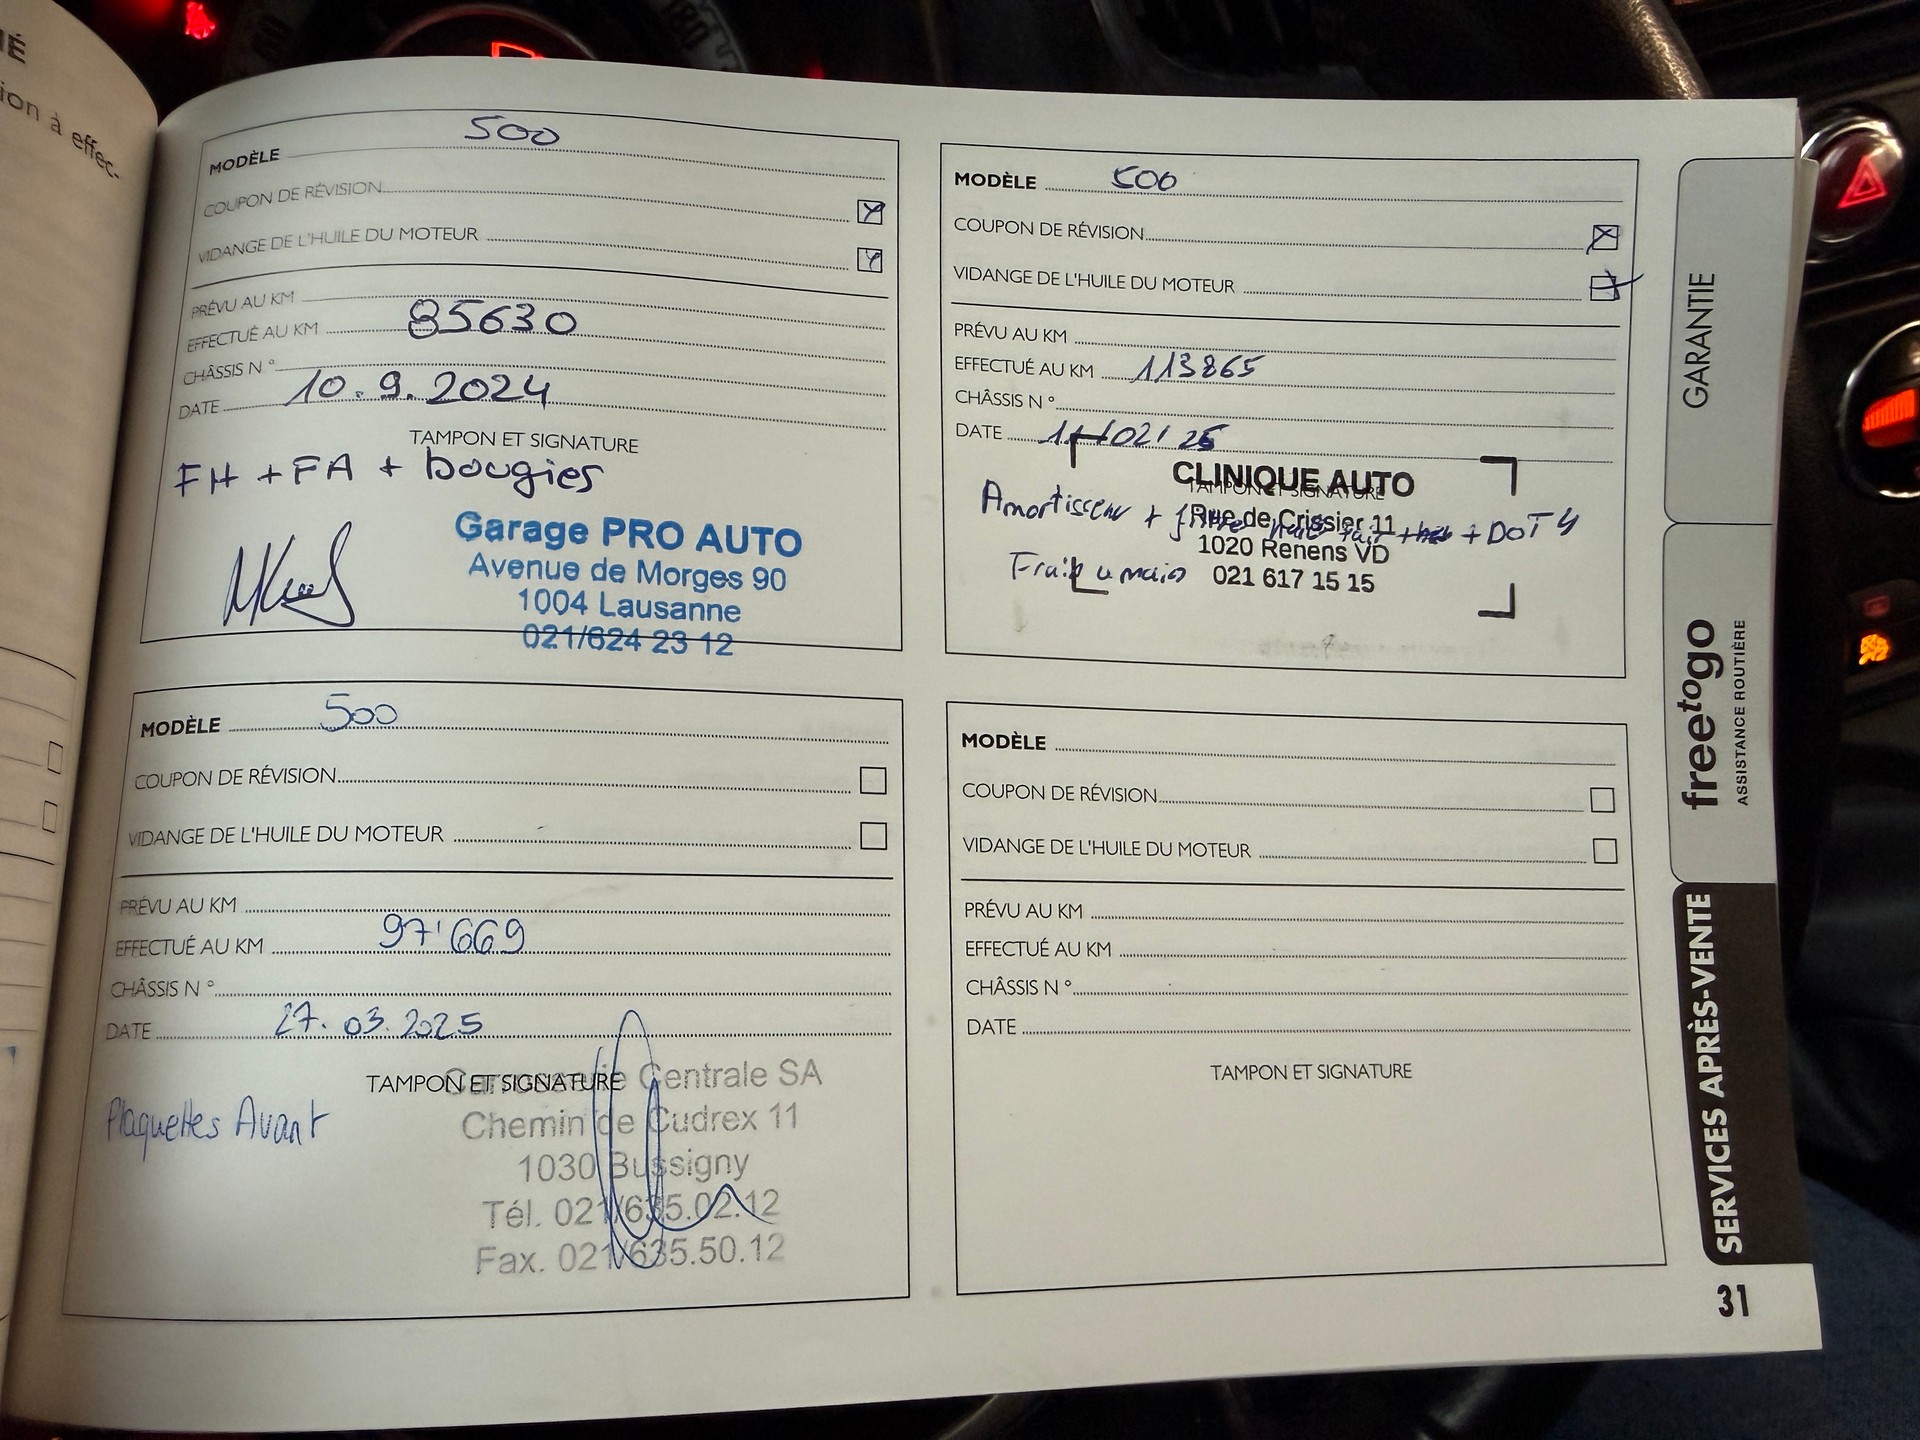 É
ion à effec-
MODÈLE 500
COUPON DE RÉVISION
VIDANGE DE L'HUILE DU MOTEUR
PRÉVU AU KM
EFFECTUÉ AU KM 85630
CHÂSSIS N °
DATE 10.9.2024
TAMPON ET SIGNATURE
FH + FA + bougies
Garage PRO AUTO
Avenue de Morges 90
1004 Lausanne
021/624 23 12
MODÈLE 500
COUPON DE RÉVISION
VIDANGE DE L'HUILE DU MOTEUR
PRÉVU AU KM
EFFECTUÉ AU KM 113865
CHÂSSIS N °
DATE
TAMPON ET SIGNATURE
CLINIQUE AUTO
Rue de Crissier 11
1020 Renens VD
021 617 15 15
Amortisseur + + DOT 4
Frein a main
MODÈLE 500
COUPON DE RÉVISION
VIDANGE DE L'HUILE DU MOTEUR
PRÉVU AU KM
EFFECTUÉ AU KM 97'669
CHÂSSIS N °
DATE 27.03.2025
TAMPON ET SIGNATURE
Plaquettes Avant
Carrosserie Centrale SA
Chemin de Cudrex 11
1030 Bussigny
Tél. 021/635.02.12
Fax. 021/635.50.12
MODÈLE
COUPON DE RÉVISION
VIDANGE DE L'HUILE DU MOTEUR
PRÉVU AU KM
EFFECTUÉ AU KM
CHÂSSIS N °
DATE
TAMPON ET SIGNATURE
GARANTIE
freetogo
ASSISTANCE ROUTIÈRE
SERVICES APRÈS-VENTE
31